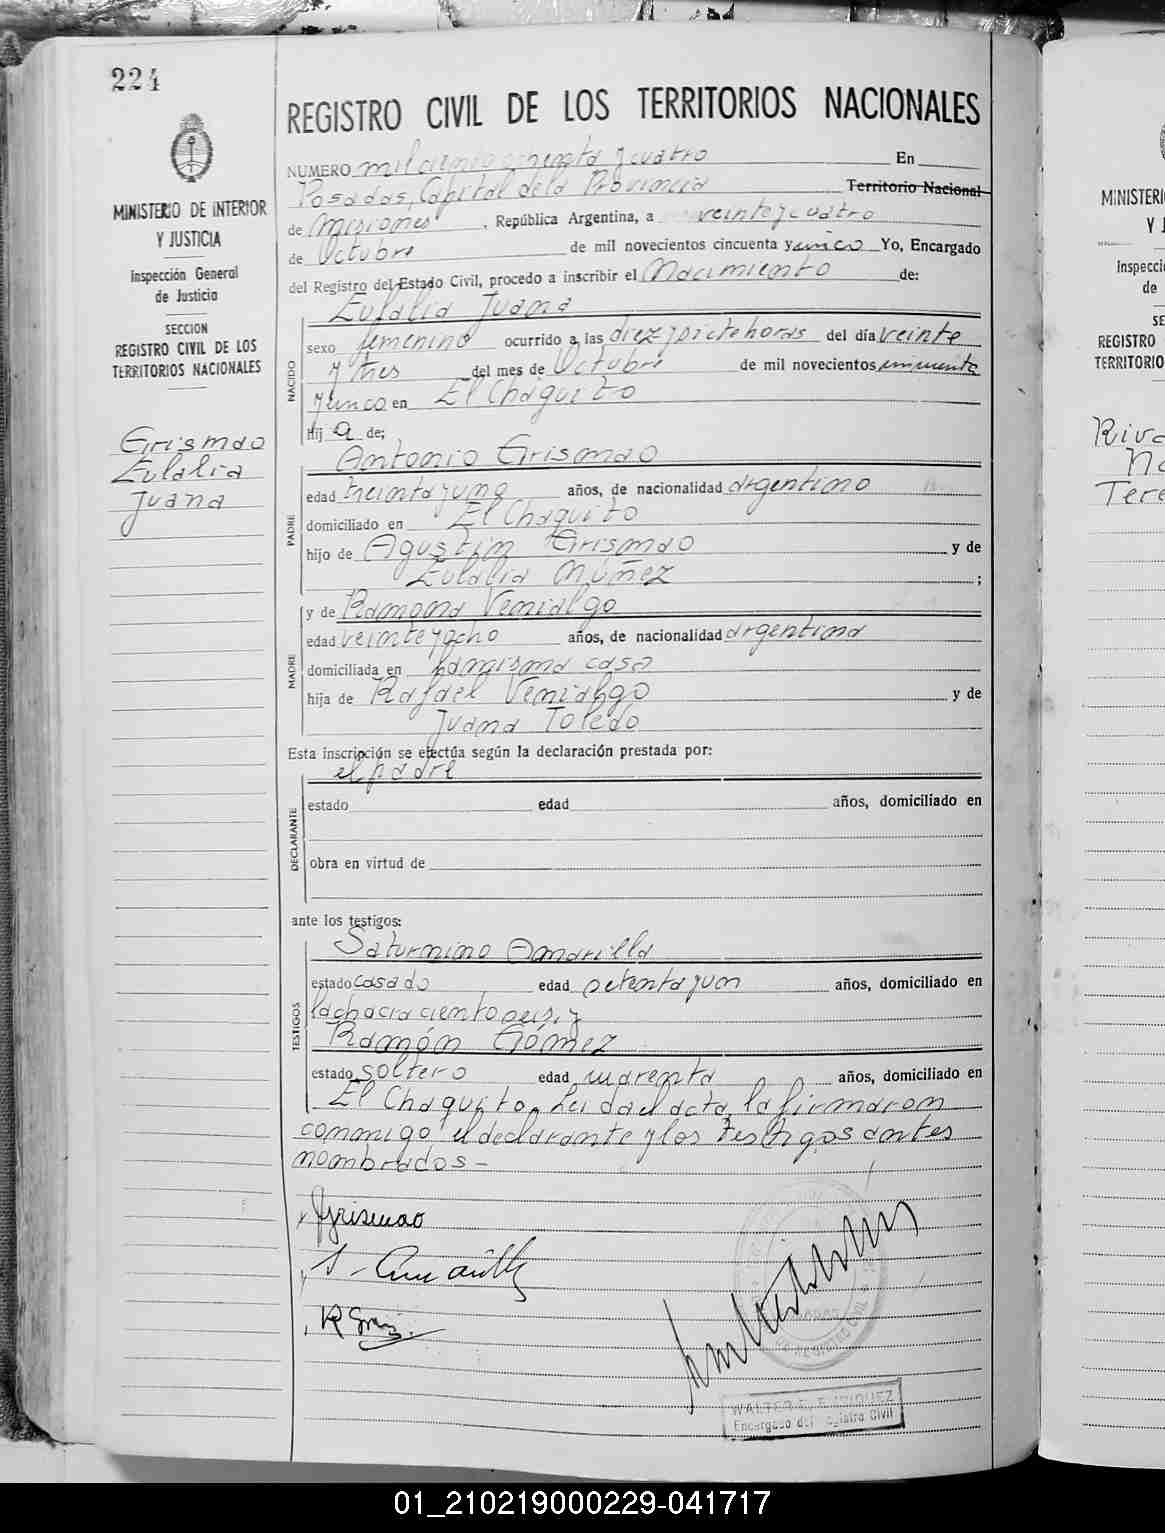 224
REGISTRO CIVIL DE LOS TERRITORIOS NACIONALES
MINISTERIO DE INTERIOR
Y JUSTICIA
Inspección General
de Justicia
SECCION
REGISTRO CIVIL DE LOS
TERRITORIOS NACIONALES
Grismao
Eulalia
Juana
NUMERO mil ciento ochenta y cuatro En
Posadas, Capital de la Provincia Territorio Nacional
de Misiones, República Argentina, a veinte y cuatro
de Octubre de mil novecientos cincuenta y cinco Yo, Encargado
del Registro del Estado Civil, procedo a inscribir el Nacimiento de:
Eulalia Juana
NACIDO
sexo femenino ocurrido a las diez y siete horas del día veinte
y tres del mes de Octubre de mil novecientos cincuenta
y cinco en El Chaquito
hij a de;
Antonio Grismao
PADRE
edad treinta y uno años, de nacionalidad argentino
domiciliado en El Chaquito
hijo de Agustín Grismao y de
Eulalia Núñez ;
y de Ramona Venialgo
MADRE
edad veinte y ocho años, de nacionalidad argentina
domiciliada en la misma casa
hija de Rafael Venialgo y de
Juana Toledo
Esta inscripción se efectúa según la declaración prestada por:
el padre
DECLARANTE
estado edad años, domiciliado en
obra en virtud de
ante los testigos:
Saturnino Amarilla
TESTIGOS
estado casado edad setenta y un años, domiciliado en
la chacra ciento seis, y
Ramón Gómez
estado soltero edad cuarenta años, domiciliado en
El Chaquito. Leída el acta, la firmaron
conmigo el declarante y los testigos antes
nombrados-
AGrismao
S. Amarilla
R Gomez
WALTER E. ENRIQUEZ
Encargado del Registro Civil
MINISTERI
Y J
Inspecci
de
SE
REGISTRO
TERRITORIO
Riva
Na
Tere
01_210219000229-041717